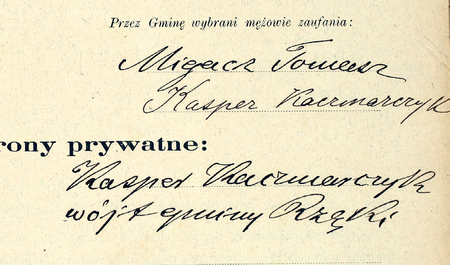 Przez Gminę wybrani mężowie zaufania:
Migacz Tomasz
Kasper Kaczmarczyk
rony prywatne:
Kasper Kaczmarczyk
wójt gminy Rząki